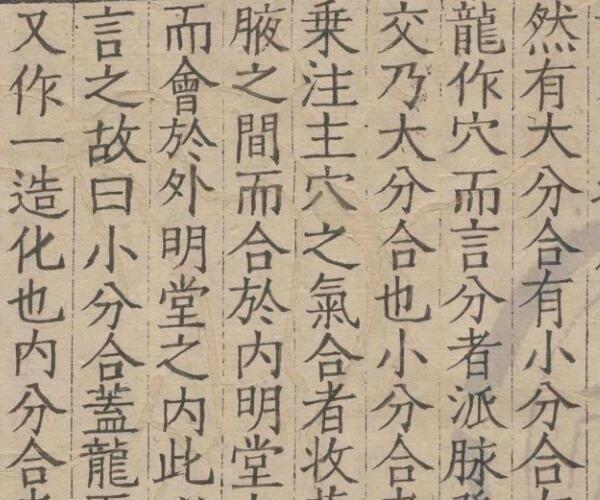 然有大分合有小分合
龍作穴而言分者派脉
交乃太分合也小分合
乗注主穴之氣合者收
腋之間而合於内明堂
而會於外明堂之内此
言之故曰小分合蓋龍
又作一造化也内分合